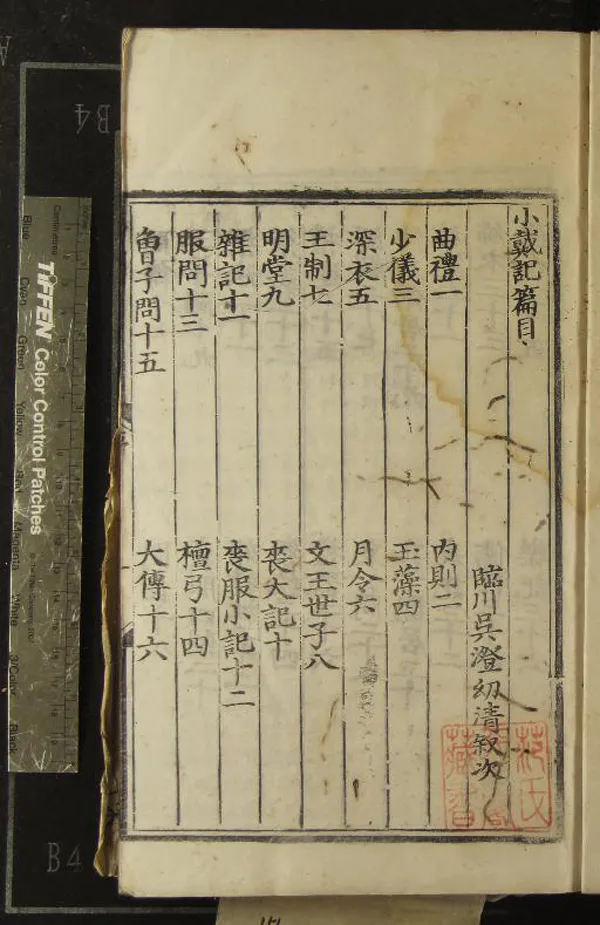 小戴記篇目
臨川吳澄幼清叙次
曲禮一
內則二
少儀三
玉藻四
深衣五
月令六
王制七
文王世子八
明堂九
喪大記十
雜記十一
喪服小記十二
服問十三
檀弓十四
曾子問十五
大傳十六
藏書
B4
B4
TIFFEN Color Control Patches
Blue
Cyan
Green
Yellow
Red
Magenta
White
3/Color
Black
Centimetres